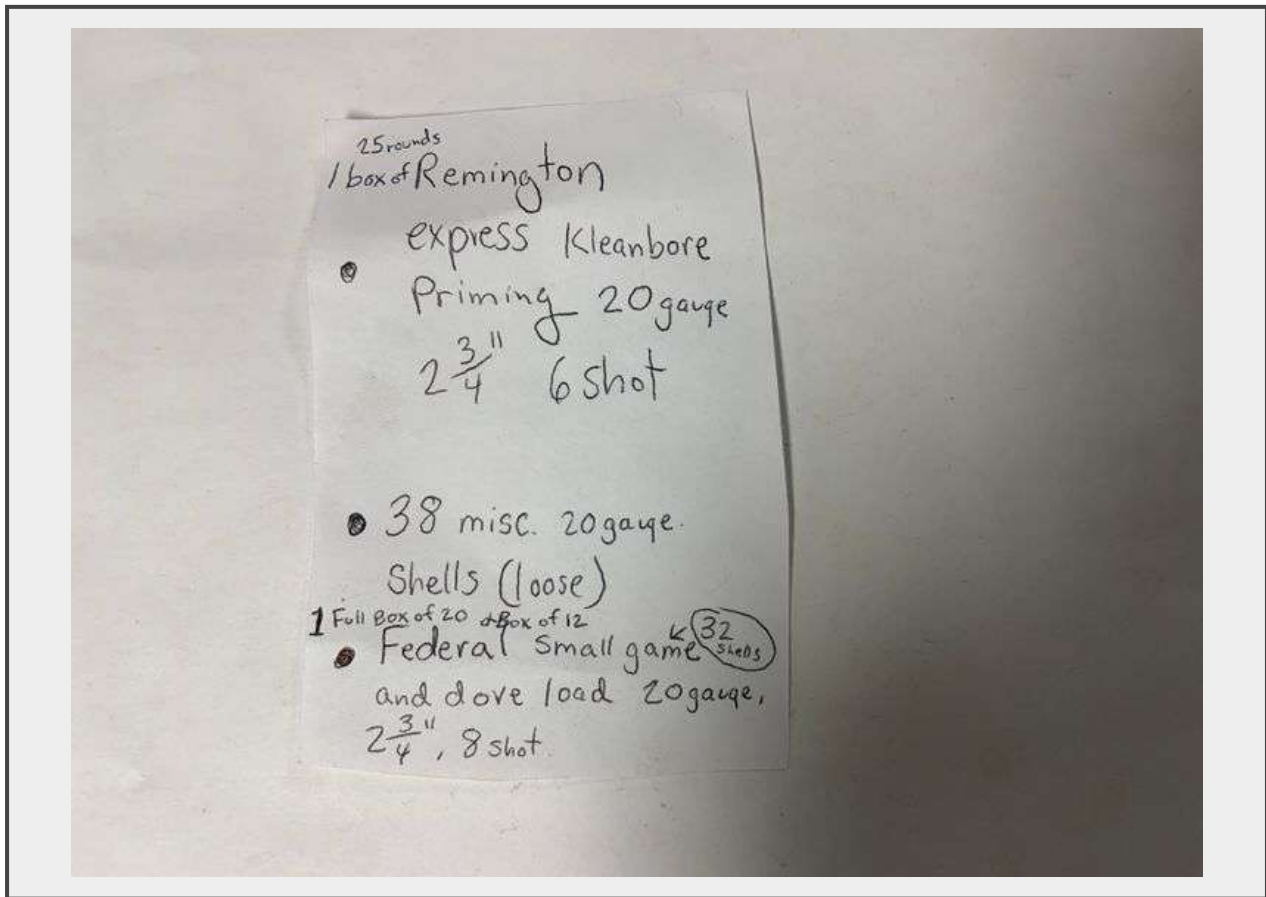 25 rounds
1 box of Remington
express Kleanbore
Priming 20 gauge
2 3/4" 6 shot
38 misc. 20 gauge.
Shells (loose)
1 Full Box of 20 + Box of 12
Federal small game 32 shells
and dove load 20 gauge,
2 3/4", 8 shot.